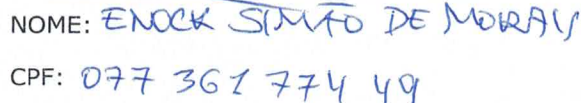 NOME: ENOCK SIMÃO DE MORAIS
CPF: 077 361 774 49